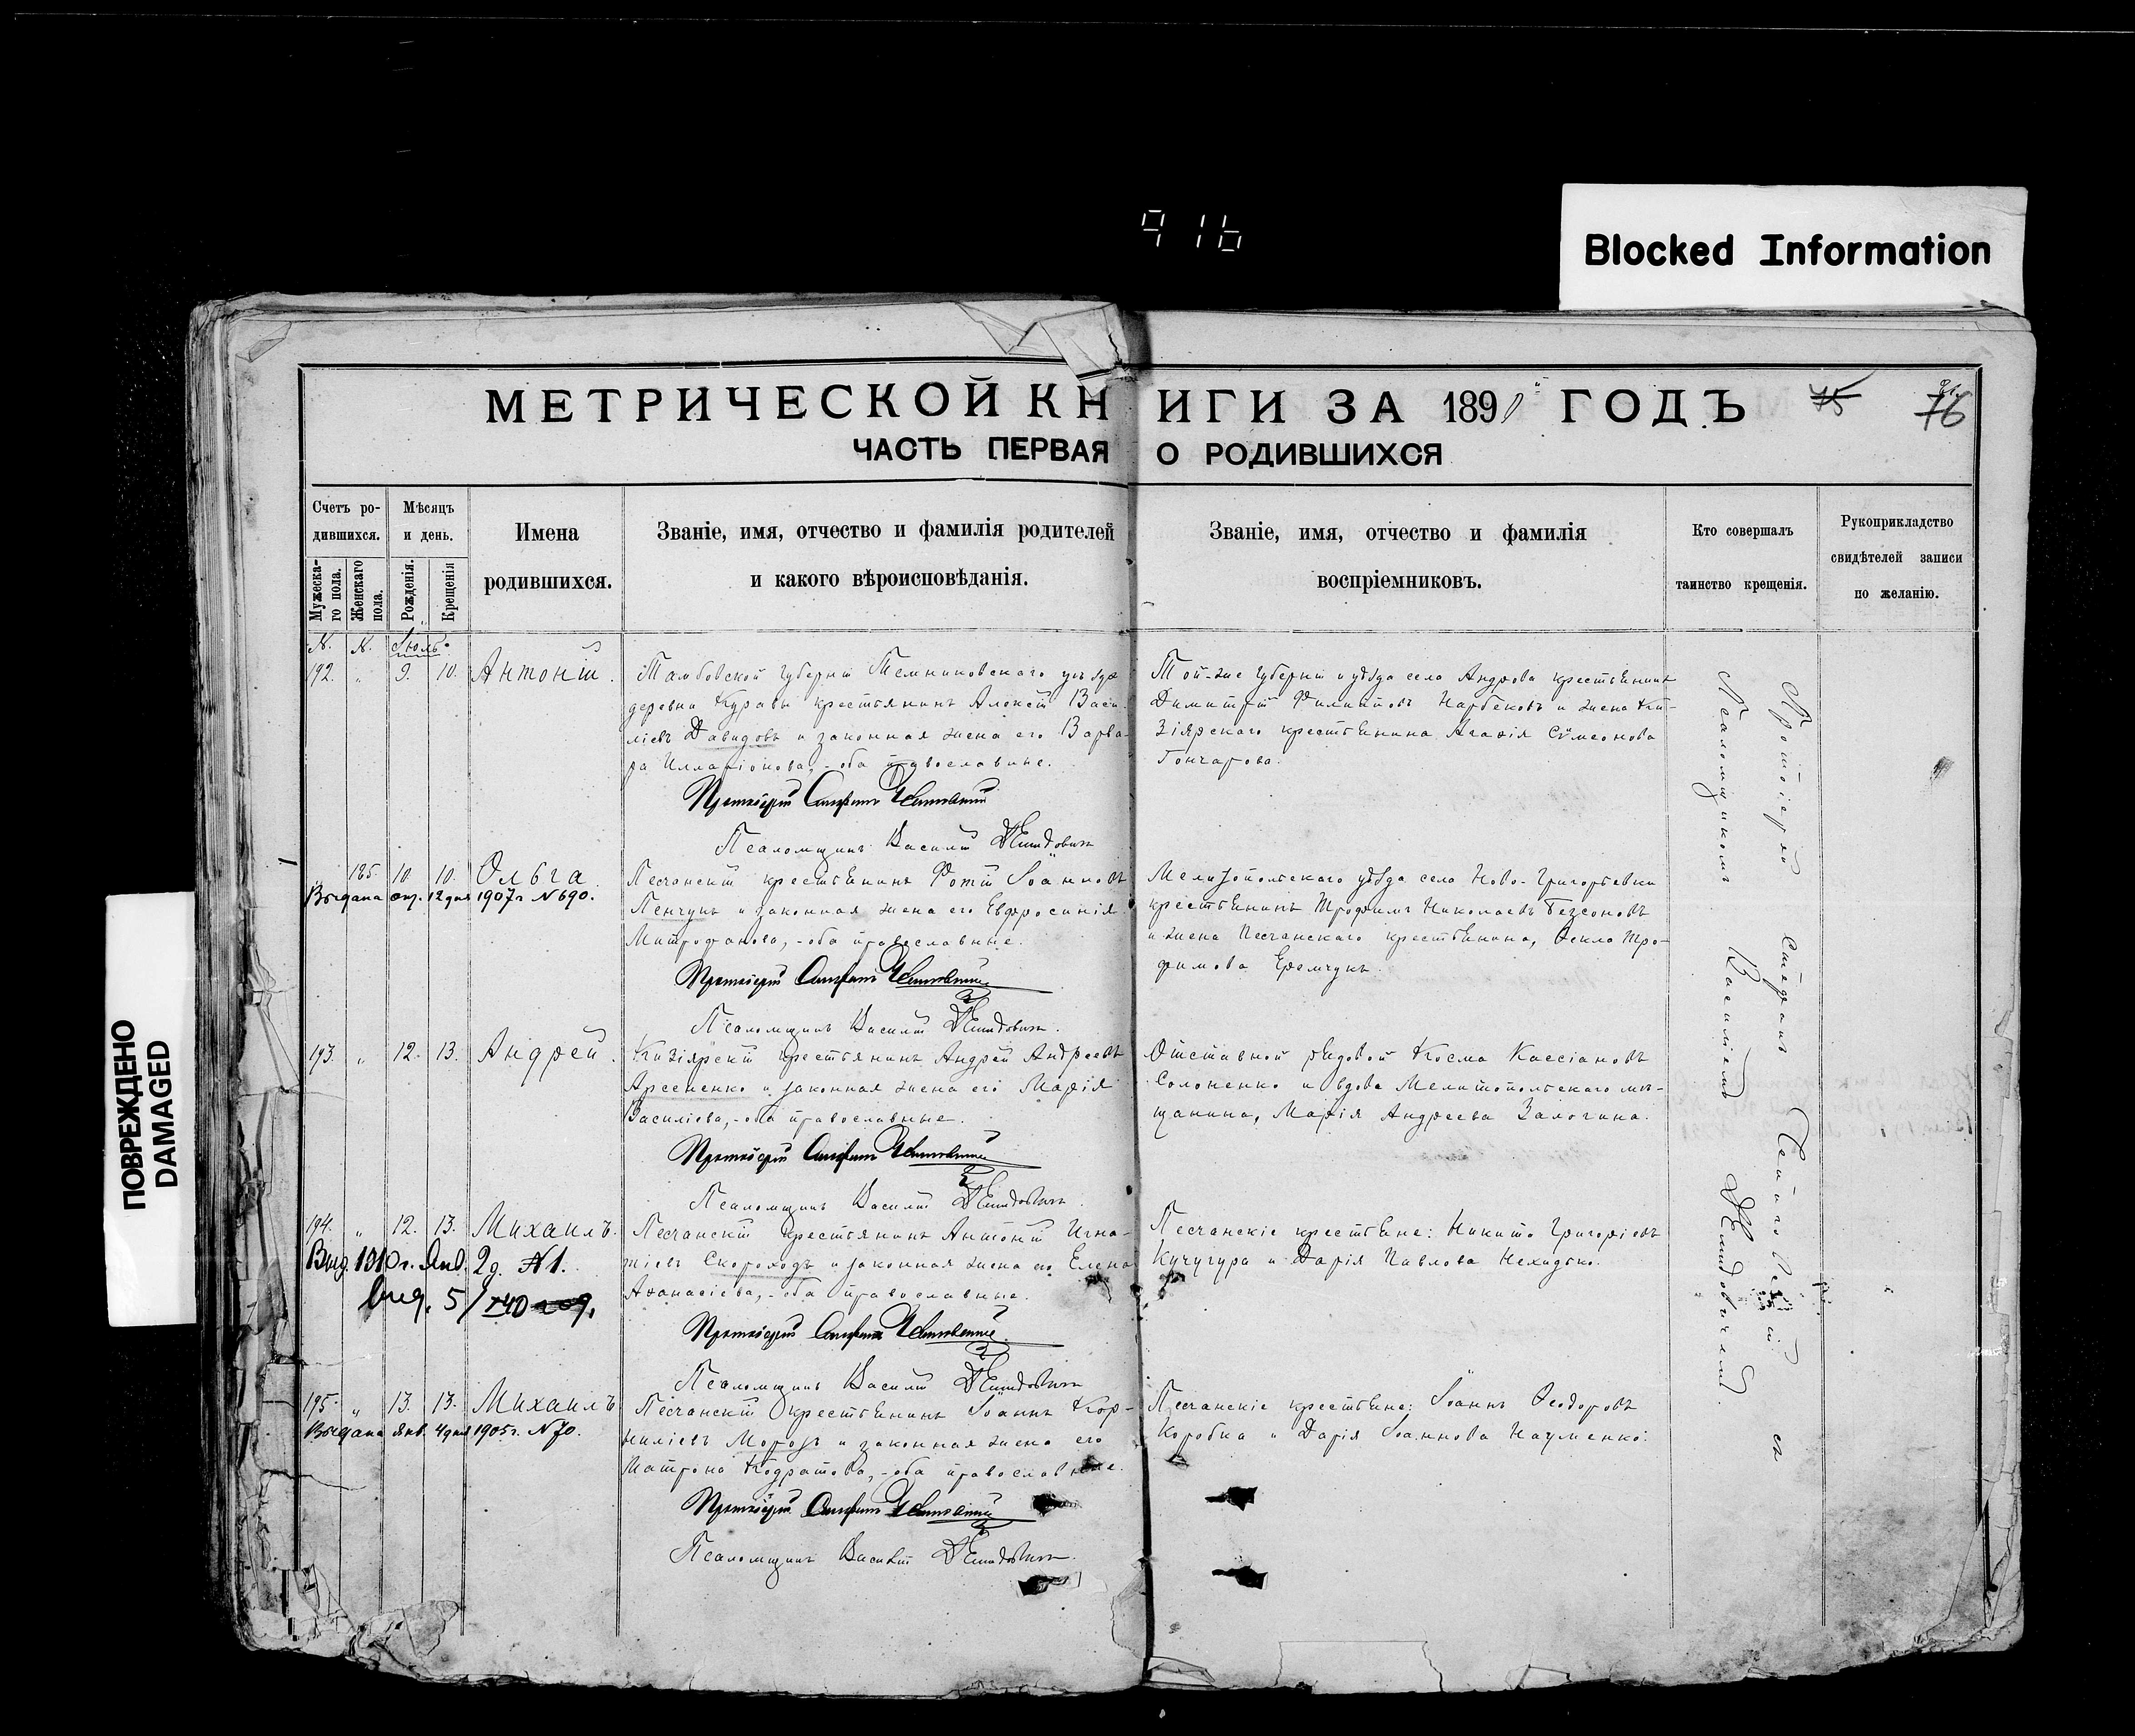 916
Blocked Information
МЕТРИЧЕСКОЙ КНИГИ ЗА 1891 ГОДЪ
75 76
ЧАСТЬ ПЕРВАЯ О РОДИВШИХСЯ
Счетъ ро-
дившихся.
Мужеска-
го пола.
Женскаго
пола.
Мѣсяцъ
и день.
Рожденія.
Крещенія
Имена
родившихся.
Званіе, имя, отчество и фамилія родителей
и какого вѣроисповѣданія.
Званіе, имя, отчество и фамилія
воспріемниковъ.
Кто совершалъ
таинство крещенія.
Рукоприкладство
свидѣтелей записи
по желанію.
N. N. Іюль.
192. " 9. 10. Антоній.
Тамбовской губерніи Темниковскаго уѣзда
деревни Куравы крестьянинъ Алексій Васи-
ліевъ Давидовъ и законная жена его Варва-
ра Илларіонова, - оба православные.
Протоіерей Стефанъ
Псаломщикъ Василій Демидовичъ
Той-же губерніи и уѣзда села Андрова крестьянинъ
Димитрій Филиповъ Нарбековъ и жена Ки-
зіярскаго крестьянина Агафія Сѵмеонова
Гончарова.
185. 10. 10. Ольга
Выдана 12 дня 1907 г. N 690.
Песчанскій крестьянинъ Фотій Іоанновъ
Пенчукъ и законная жена его Евфросинія
Митрофанова, - оба православные.
Протоіерей Стефанъ
Псаломщикъ Василій Демидовичъ.
Мелитопольскаго уѣзда села Ново-Григорьевки
крестьянинъ Трофимъ Николаевъ Безсоновъ
и жена Песчанскаго крестьянина, Ѳекла Тро-
фимова Еремчукъ.
193. " 12. 13. Андрей.
Кизіярскій крестьянинъ Андрей Андреевъ
Арсененко и законная жена его Марія
Василіева, - оба православные.
Протоіерей Стефанъ
Псаломщикъ Василій Демидовичъ
Отставной рядовой Косма Кассіановъ
Солоненко и вдова Мелитопольскаго мѣ-
щанина, Марія Андреева Залогина.
194. " 12. 13. Михаилъ.
Выд. 1910 г. Янв. 2 д. N 1.
выд. 5/ 140 год.
Песчанскій крестьянинъ Антоній Игна-
тіевъ Скороходъ и законная жена его Елена
Аѳанасіева, - оба православные.
Протоіерей Стефанъ
Псаломщикъ Василій Демидовичъ
Песчанскіе крестьяне: Никита Григоріевъ
Кучугура и Дарія Павлова Нехидько.
195. " 13. 13. Михаилъ
Выдана янв. 4 дня 1905 г. N 70.
Песчанскій крестьянинъ Іоаннъ Кор-
ниліевъ Морозъ и законная жена его
Матрона Кодратова, - оба православные.
Протоіерей Стефанъ
Псаломщикъ Василій Демидовичъ.
Песчанскіе крестьяне: Іоаннъ Ѳеодоровъ
Коробка и Дарія Іоаннова Науменко.
Протоіерей Стефанъ съ
Псаломщикомъ Василіемъ Демидовичемъ.
ПОВРЕЖДЕНО
DAMAGED